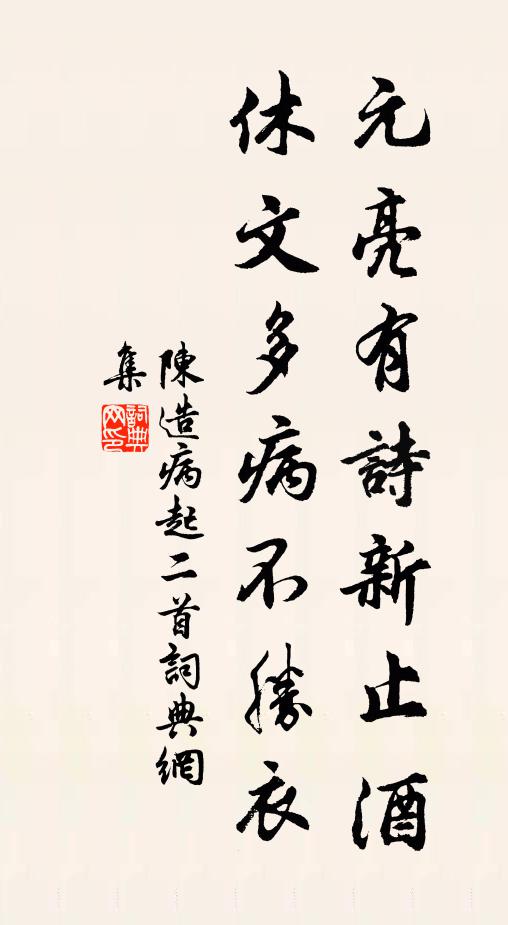 元亮有詩新止酒
休文多病不勝衣
陳造病起二首詞典網
集
詞典
网印